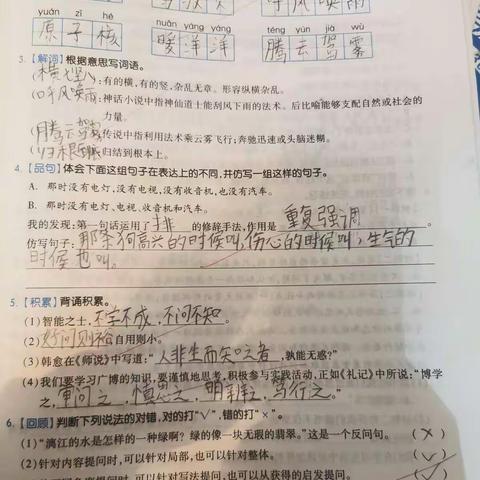 yuán zǐ hé nuǎn yáng yáng téng yún jià wù
原子核 暖洋洋 腾云驾雾
3.【解词】根据意思写词语。
(横七竖八):有的横,有的竖,杂乱无章。形容纵横杂乱。
(呼风唤雨):神话小说中指神仙道士能刮风下雨的法术。后比喻能够支配自然或社会的
力量。
(腾云驾雾)传说中指利用法术乘云雾飞行;奔驰迅速或头脑迷糊。
(归根到底)归结到根本上。
4.【品句】体会下面这组句子在表达上的不同,并仿写一组这样的句子。
A. 那时没有电灯,没有电视,没有收音机,也没有汽车。
B. 那时没有电灯、电视、收音机和汽车。
我的发现:第一句话运用了 排 的修辞手法,作用是 重复强调
仿写句子:那条狗高兴的时候叫,伤心的时候叫,生气的
时候也叫。
5.【积累】背诵积累。
(1)智能之士,不学不成,不问不知。
(2)好问则裕,自用则小。
(3)韩愈在《师说》中写道:“人非生而知之者,孰能无惑?”
(4)我们要学习广博的知识,要谨慎地思考,积极参与实践活动,正如《礼记》中所说:“博学
之,审问之,慎思之,明辨之,笃行之。”
6.【回顾】判断下列说法的对错,对的打“√”,错的打“×”。
(1)“漓江的水是怎样的一种绿啊?绿的像一块无瑕的翡翠。”这是一个反问句。 (×)
(2)针对内容提问时,可以针对局部,也可以针对整体。 (√)
时,可以针对写法提问,也可以从获得的启发提问。 (√)